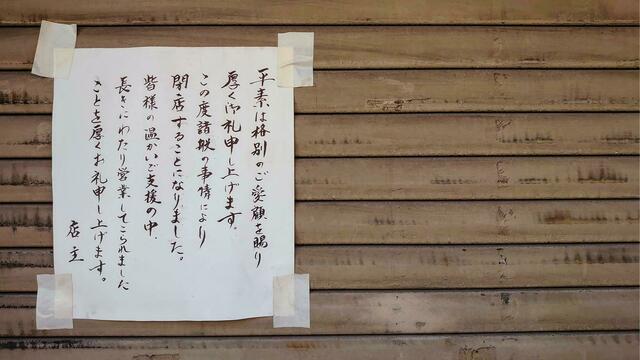 平素は格別のご愛顧を賜り
厚く御礼申し上げます。
この度諸般の事情により
閉店することになりました。
皆様の温かいご支援の中、
長きにわたり営業してこられました
ことを厚くお礼申し上げます。
店主